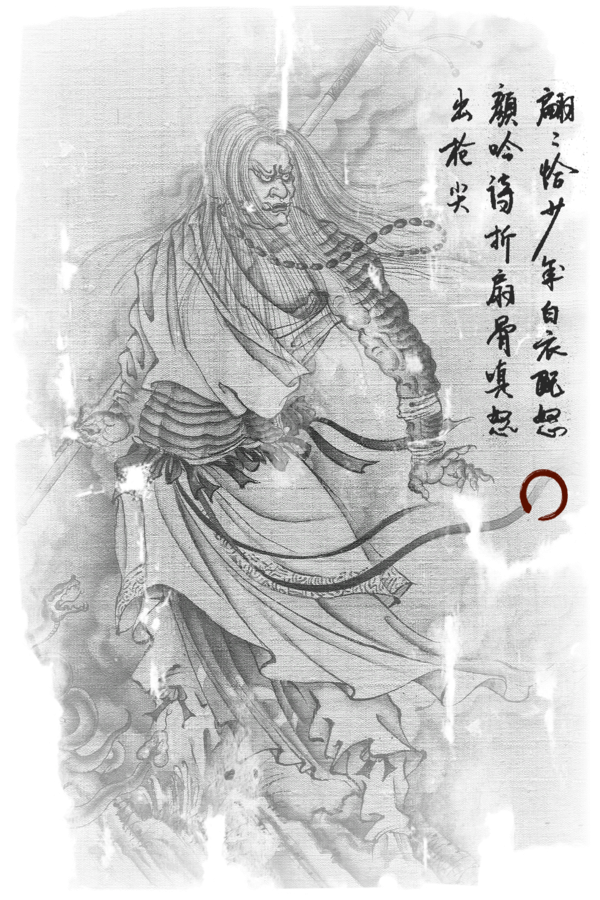 翩〻恰少年白衣配怒
顏吟诗折扇骨嗔怒
出枪尖